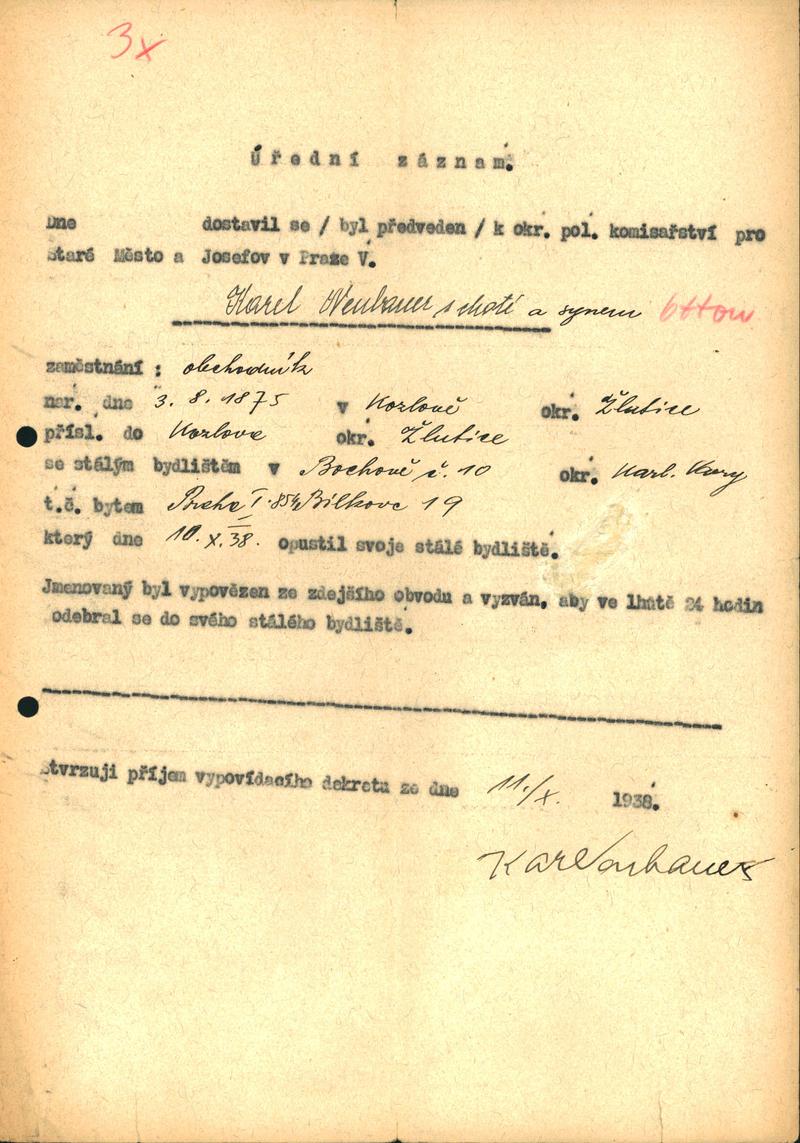 3x
Úřední záznam.
Dne dostavil se / byl předveden / k okr. pol. komisařství pro
Staré Město a Josefov v Praze V.
Karel Neubauer s chotí a synem Ottou
zaměstnání : obchodník
nar. dne 3. 8. 1875 v Kozlově okr. Žlutice
přísl. do Kozlova okr. Žlutice
se stálým bydlištěm v Bochově č. 10 okr. Karl. Vary
t.č. bytem Praha Bílkova 19
který dne 10. X. 38. opustil svoje stálé bydliště.
Jmenovaný byl vypovězen ze zdejšího obvodu a vyzván, aby ve lhůtě 24 hodin
odebral se do svého stálého bydliště.
Stvrzuji příjem vypovídacího dekretu ze dne 11./X. 1938.
Karl Neubauer